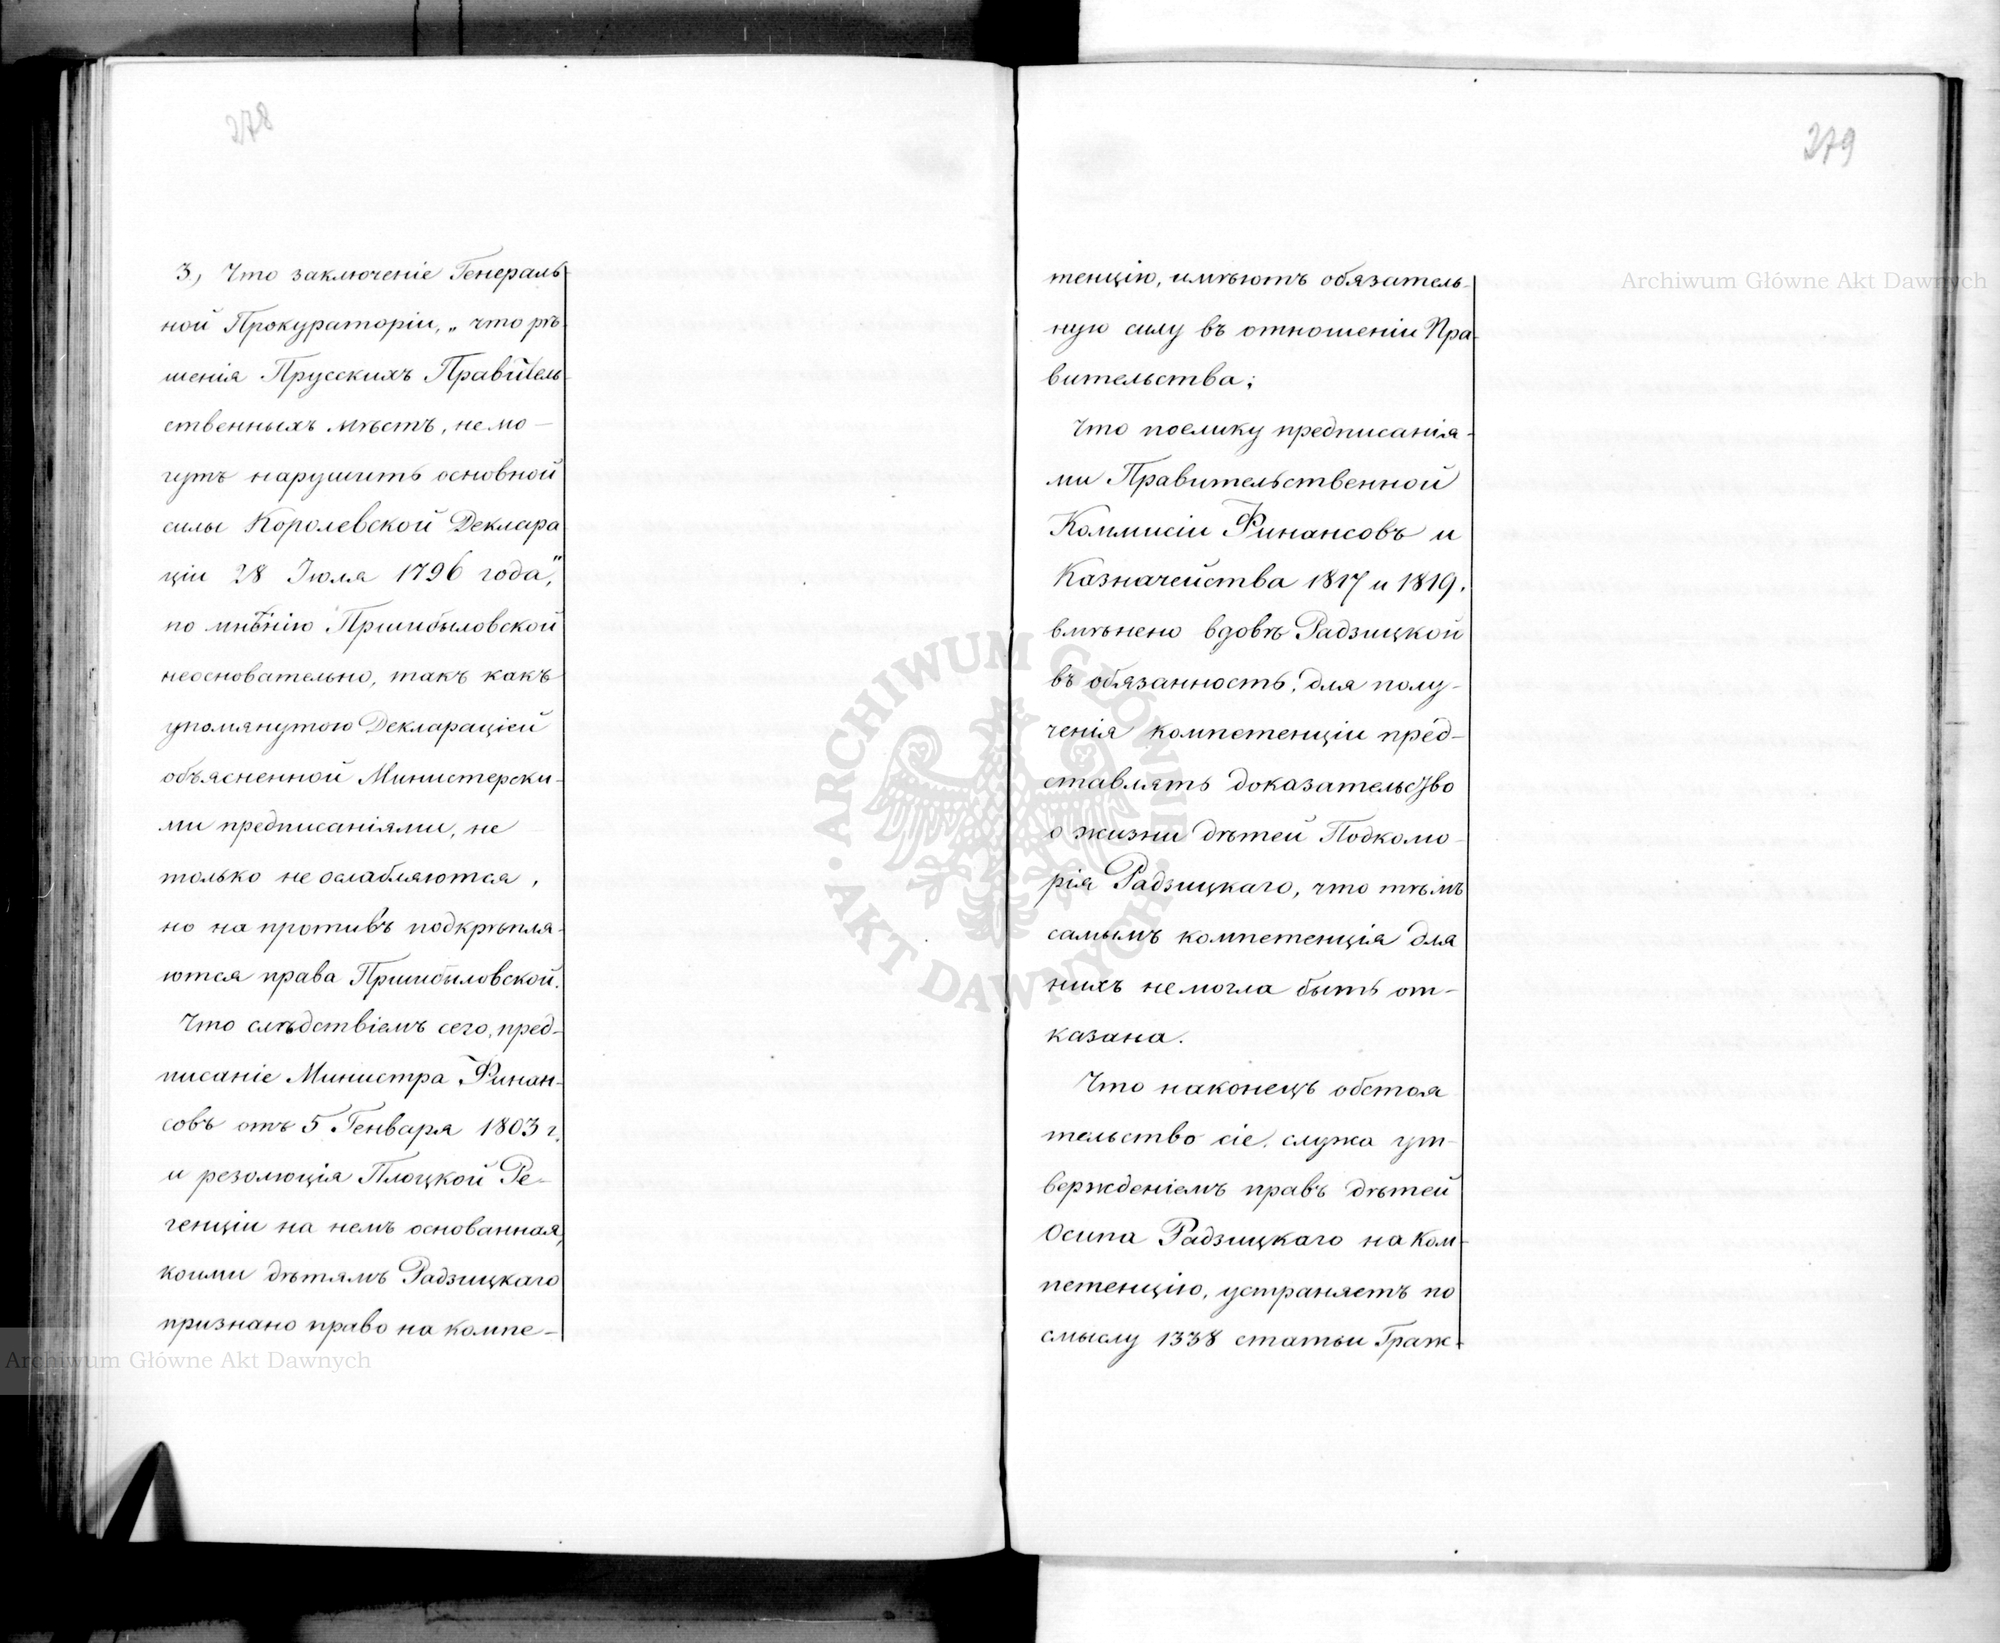 278
3, Что заключеніе Генераль-
ной Прокураторіи, „что рѣ-
шенія Прусскихъ Правитель-
ственныхъ мѣстъ, не мо-
гутъ нарушить основной
силы Королевской Деклара
ціи 28 Іюля 1796 года,"
по мнѣнію Пршибыловской
неосновательно, такъ какъ
упомянутою Деклараціей
объясненной Министерски-
ми предписаніями, не
только не ослабляются,
но на противъ подкрѣпля-
ются права Пршибыловской.
Что слѣдствіемъ сего, пред-
писаніе Министра Финан-
совъ отъ 5 Генваря 1803 г.
и резолюція Плоцкой Ре-
генціи на немъ основанная,
коими дѣтямъ Радзицкаго
признано право на компе-
279
тенцію, имѣютъ обязатель-
ную силу въ отношеніи Пра-
вительства;
Что поелику предписанія-
ми Правительственной
Коммисіи Финансовъ и
Казначейства 1817 и 1819.
вмѣнено вдовѣ Радзицкой
въ обязанность, для полу-
ченія компетенціи пред-
ставлять доказательство
о жизни дѣтей Подкомо-
рія Радзицкаго, что тѣмъ
самымъ компетенція для
нихъ не могла быть от-
казана.
Что наконецъ обстоя
тельство сіе, служа ут-
вержденіемъ правъ дѣтей
Осипа Радзицкаго на ком-
петенцію, устраняетъ по
смыслу 1338 статьи Граж-
Archiwum Główne Akt Dawnych
Archiwum Główne Akt Dawnych
ARCHIWUM GŁÓWNE · AKT DAWNYCH ·